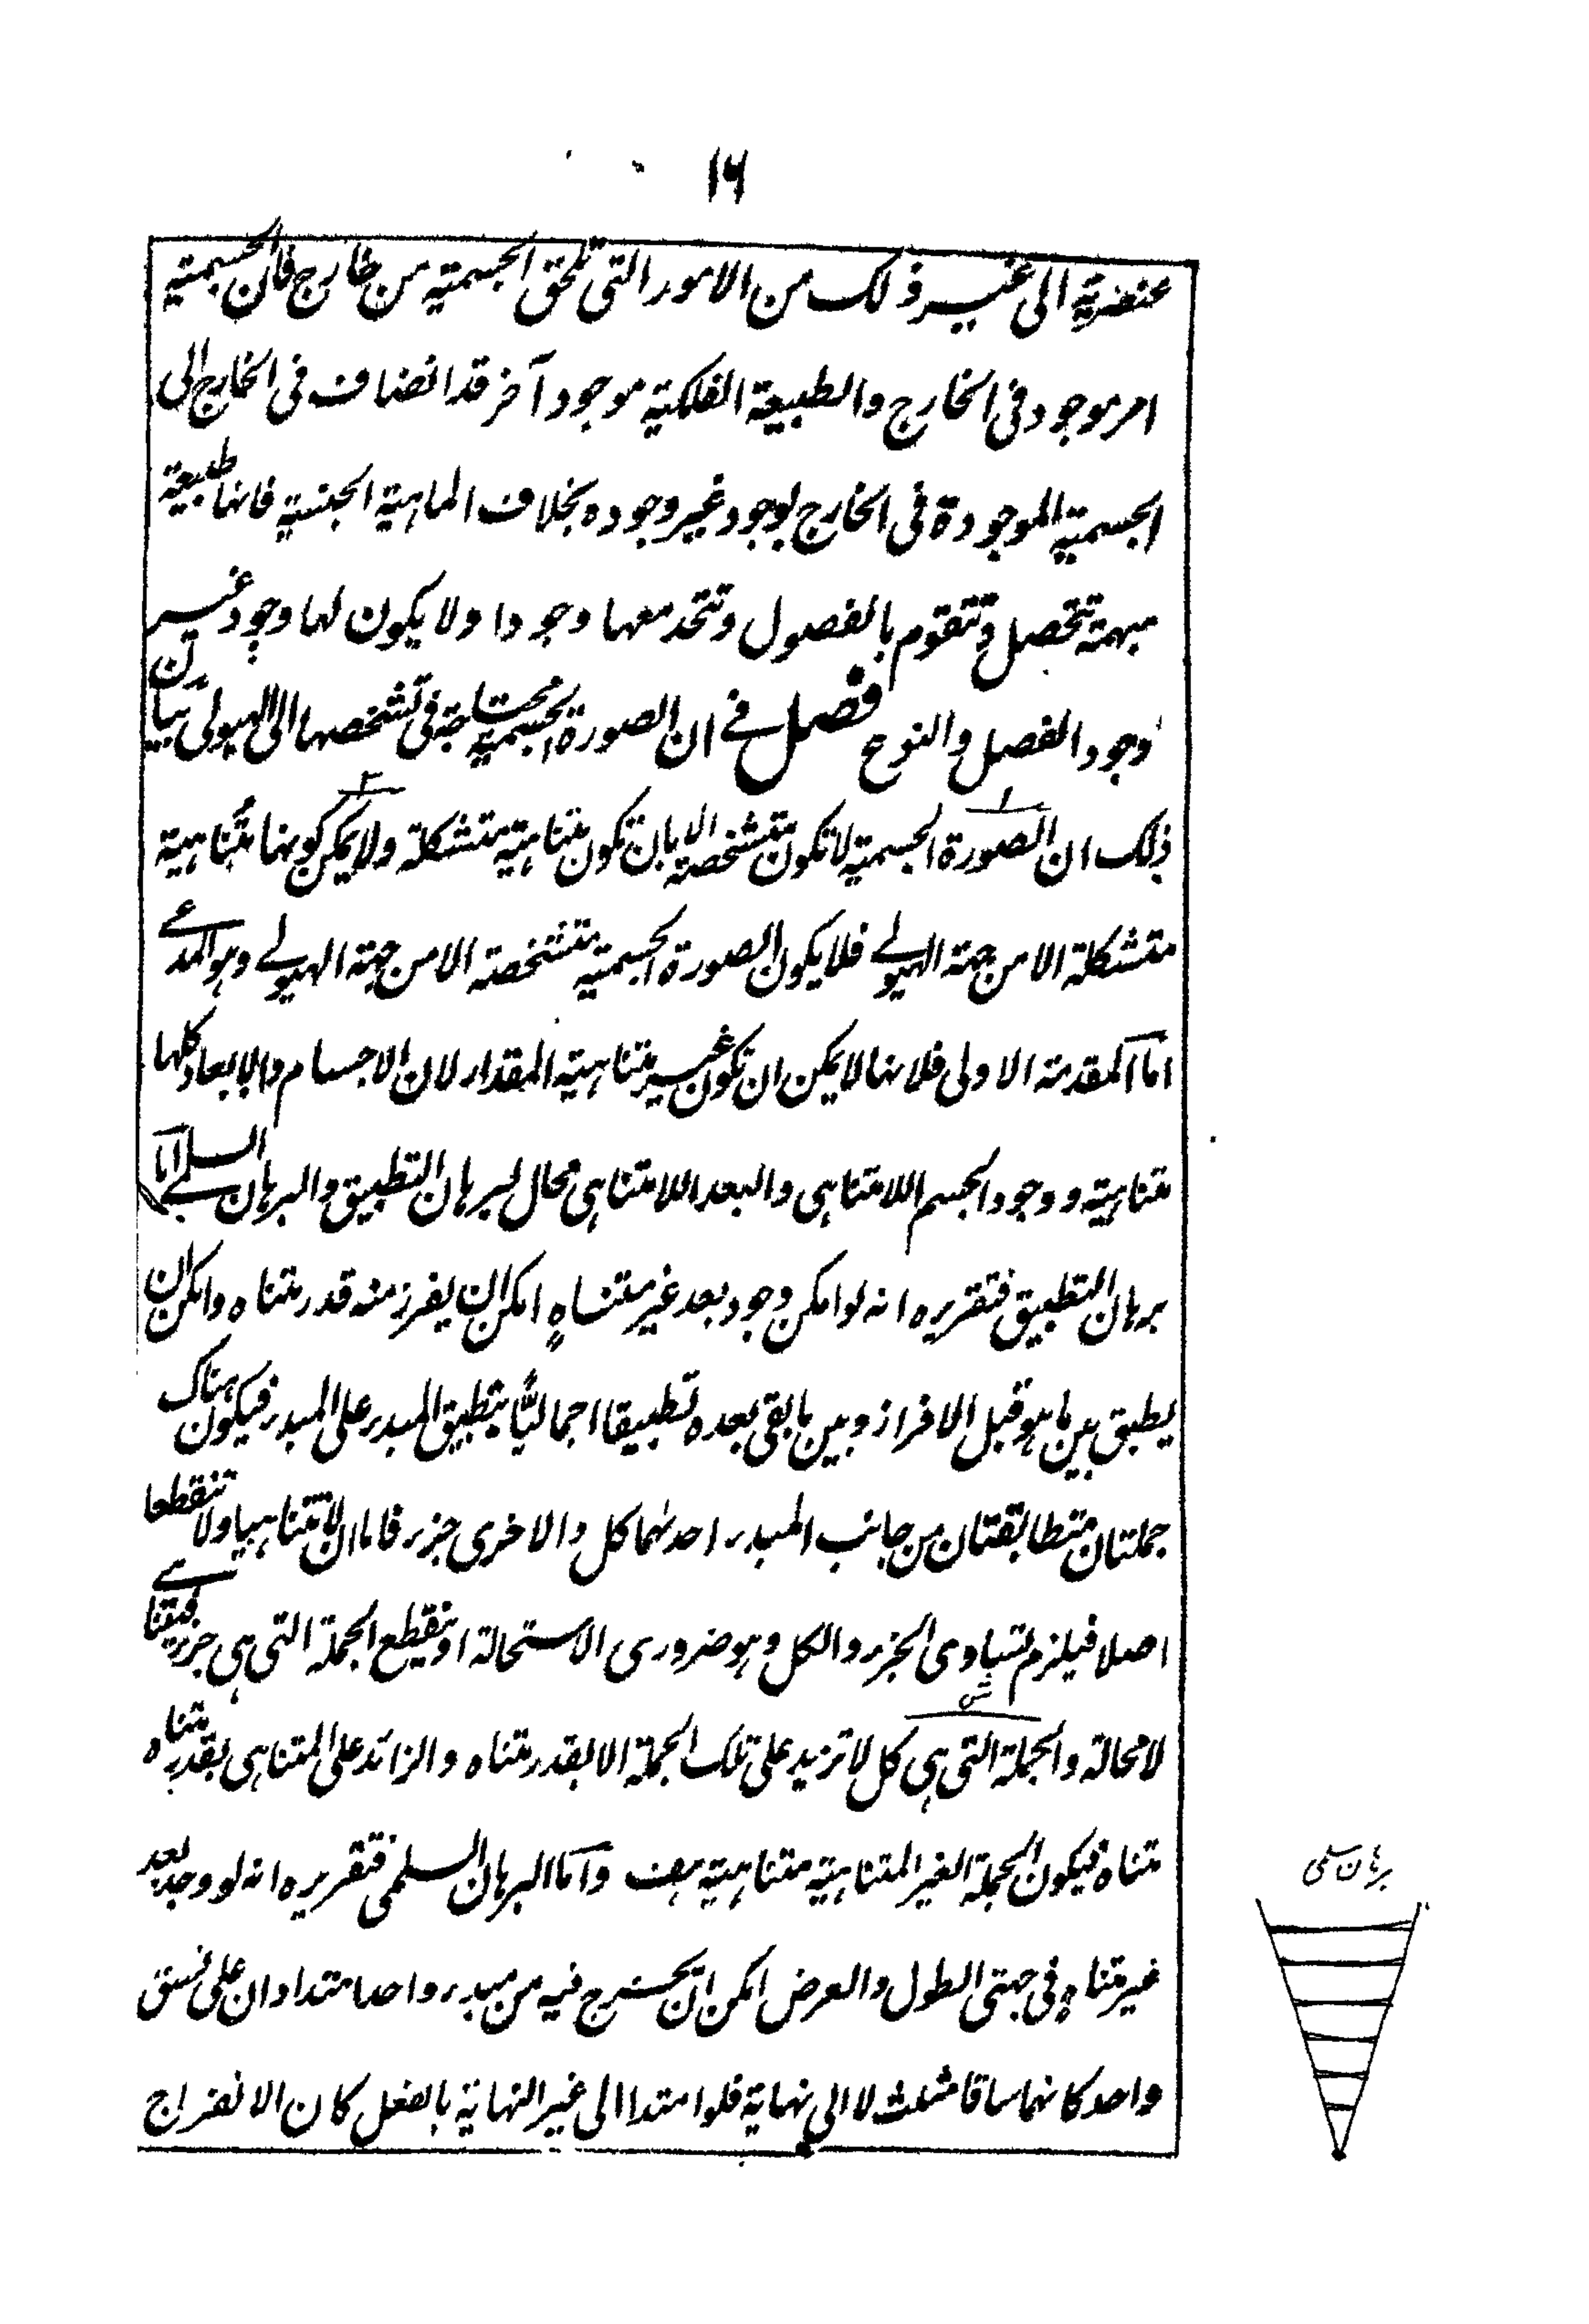 ١٦
عنصرية الى غير ذلك من الامور التى تلحق الجسمية من خارج فان الجسمية
امر موجود فى الخارج والطبيعة الفلكية موجود آخر قد انضاف فى الخارج الى
الجسمية الموجودة فى الخارج بوجود غير وجوده بخلاف الماهية الجنسية فانها طبيعة
مبهمة تتحصل وتتقوم بالفصول وتتحد معها وجودا ولا يكون لها وجود غير
وجود الفصل والنوع فصل فے ان الصورة الجسمية محتاجة فى تشخصها الى الهيولى بيان
ذلك ان الصورة الجسمية لا تكون متشخصة الا بان تكون متناهية متشكلة ولا يمكن كونها متناهية
متشكلة الا من جهة الهيولے فلا يكون الصورة الجسمية متشخصة الا من جهة الهيولے وهو المدعے
اما المقدمة الاولى فلانها لا يمكن ان تكون غير متناهية المقدار لان الاجسام والابعاد كلها
متناهية ووجود الجسم اللامتناهى والبعد اللامتناهى محال لبرهان التطبيق والبرهان السلمے اما
برهان التطبيق فتقريره انه لو امكن وجود بعد غير متناهٍ امكن ان يفرز منه قدر متناه وامكن ان
يطبق بين ما هو قبل الافراز وبين ما بقى بعده تطبيقا اجماليًّا بتطبيق المبدء على المبدء فيكون هناك
جملتان متطابقتان من جانب المبدء احدٰهما كل والاخرى جزء فاما ان لا تتناهيا ولا تنقطعا
اصلا فيلزم تساوى الجزء والكل وهو ضرورى الاستحالة او تنقطع الجملة التى هى جزء فيتناهے
لا محالة والجملة التى هى كل لا تزيد على تلك الجملة الا بقدر متناه والزائد على المتناهى بقدر متناه
متناه فيكون الجملة الغير المتناهية متناهية هف واما البرهان السلمى فتقريره انه لو وجد بعد
غير متناهٍ فى جهتى الطول والعرض امكن ان يخرج فيه من مبدء واحد امتدادان على نسق
واحد كانهما ساقا مثلث لا الى نهاية فلو امتدا الى غير النهاية بالفعل كان الانفراج
برهان سلمى